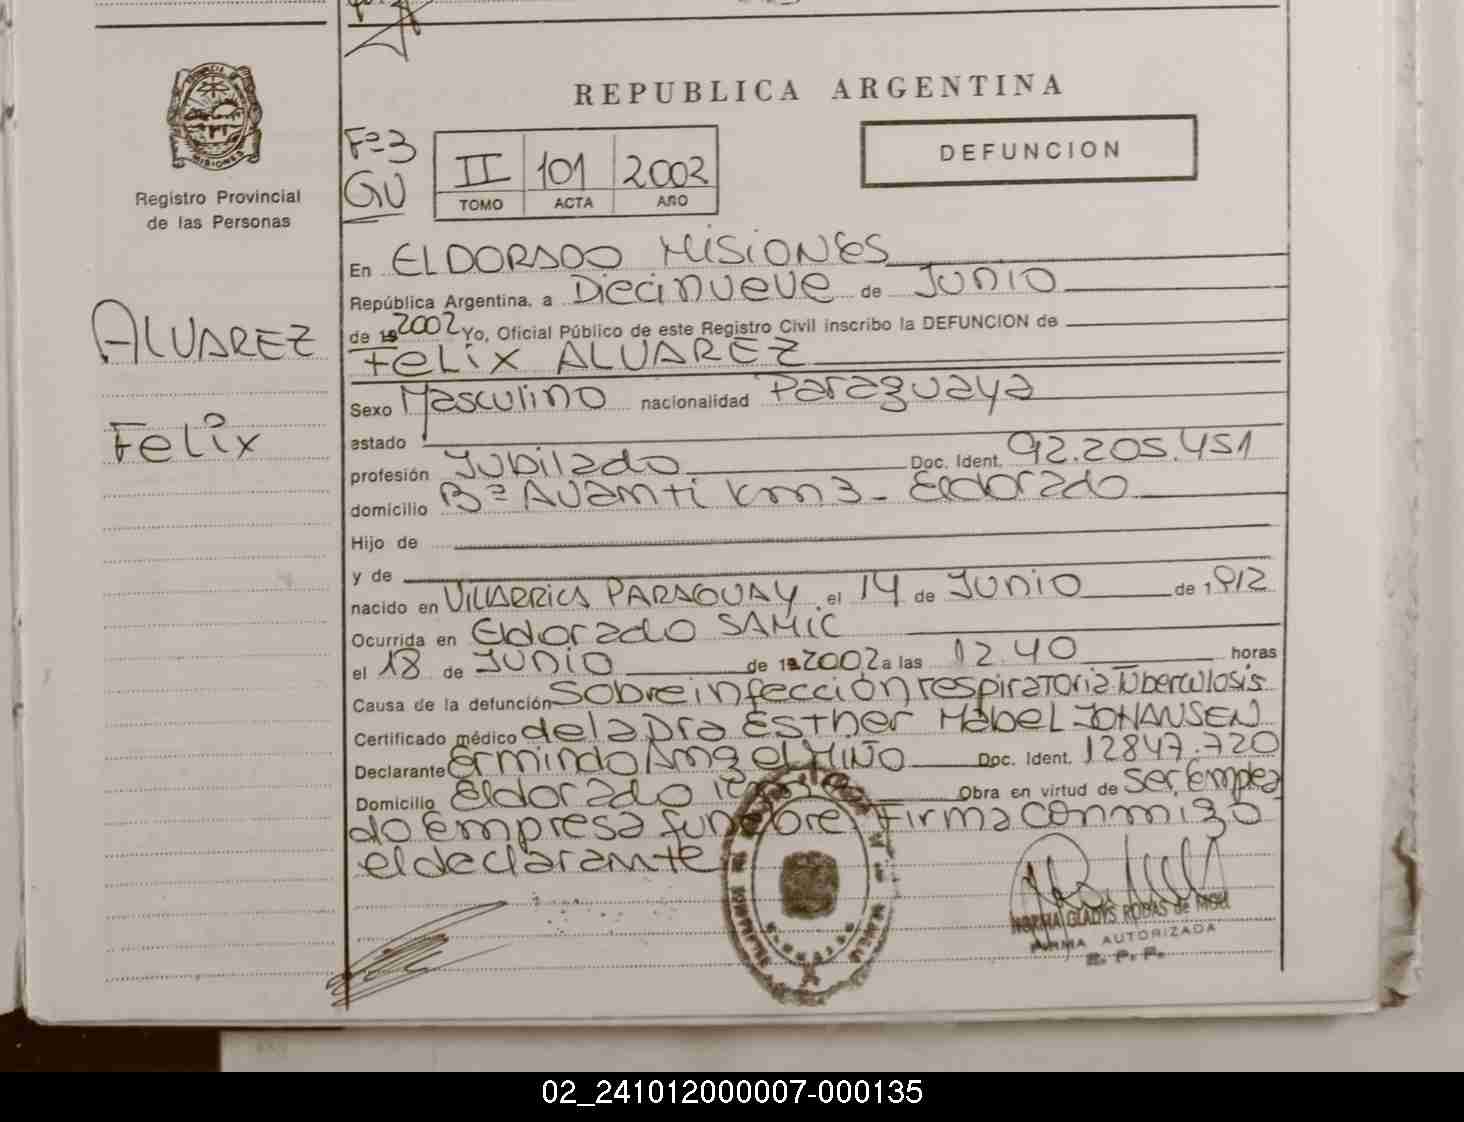 REPUBLICA ARGENTINA
PROVINCIA DE
MISIONES
Registro Provincial
de las Personas
Fº-3
GU
II 101 2002
TOMO ACTA AÑO
DEFUNCION
ALVAREZ
Felix
En ELDORADO MISIONES
República Argentina, a Diecinueve de JUNIO
de 192002 Yo, Oficial Público de este Registro Civil inscribo la DEFUNCION de
Felix ALVAREZ
Sexo Masculino nacionalidad Paraguaya
estado
profesión Jubilado Doc. Ident. 92.205.451
domicilio Bº Avanti Km 3 - Eldorado
Hijo de
y de
nacido en VILLARRICA PARAGUAY el 14 de JUNIO de 1912
Ocurrida en Eldorado SAMIC
el 18 de JUNIO de 192002 a las 12.40 horas
Causa de la defunción Sobreinfección respiratoria Tuberculosis
Certificado médico de la Dra Esther Mabel JOHANSEN
Declarante Ermindo Angel MIÑO Doc. Ident. 12847.720
Domicilio Eldorado Obra en virtud de Ser, emplea
do empresa funebre, firma conmigo
el declarante
NORMA GLADYS ROBAS de MOLL
FIRMA AUTORIZADA
R. P. P.
02_241012000007-000135